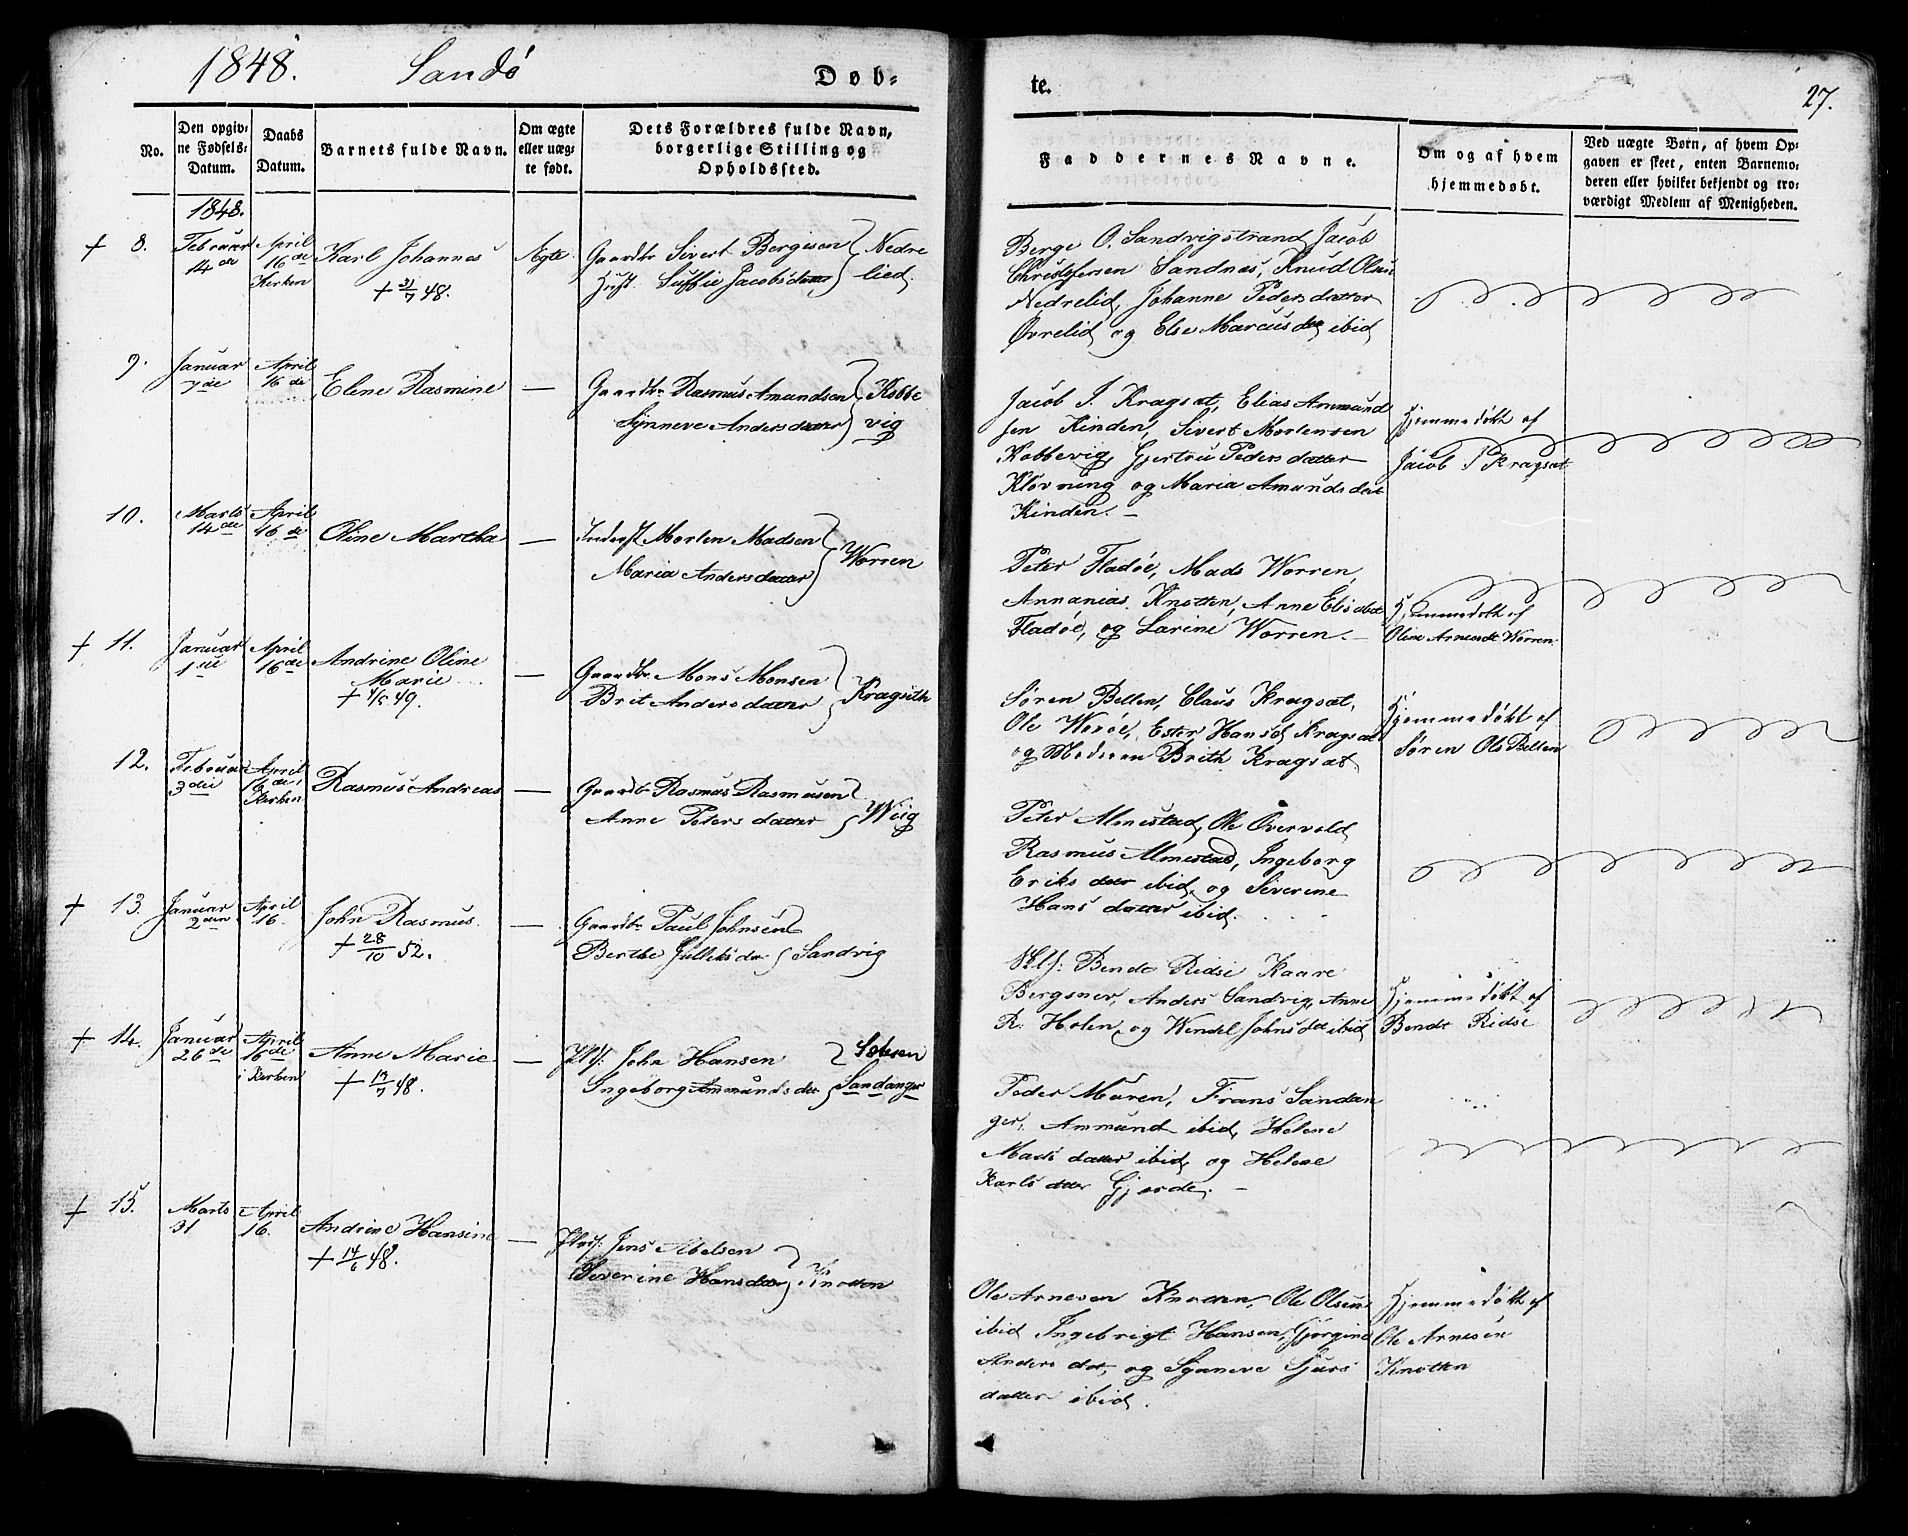 1848. Sandø Døb-
No.
Den opgiv-
ne Fødsels-
Datum.
Daabs
Datum.
Barnets fulde Navn.
Om ægte
eller uæg-
te født.
Dets Forældres fulde Navn,
borgerlige Stilling og
Opholdssted.
1848.
+ 8. Februar 14de
April 16de Kirken
Karl Johannes
+ 31/7 48.
Ægte.
Gaardbr Sivert Bergesen
Hust. Suffie Jacobsdatter
Nedre
lied.
9. Januar 7de
April 16de
Elene Rasmine
—
Gaardbr Rasmus Amundsen
Synneve Andersdatter
Kobbe
vig
10. Marts 14de
April 16de
Oline Martha
—
Inderst Morten Madsen
Maria Andersdatter
Worren
+ 11. Januar 1ste
April 16de
Andrine Oline
Marie
+ 4/5 49.
—
Gaardbr Mons Monsen
Brit Andersdatter
Kragseth
12. Februar 3die
April 16de Kirken
Rasmus Andreas
—
Gaardbr Rasmus Rasmusen
Anne Petersdatter
Wiig
+ 13. Januar 2den
April 16.
John Rasmus.
+ 28/10 52.
—
Gaardbr Paul Johnsen
Berthe
Sandvig
+ 14. Januar 26de
April 16de i Kirken
Anne Marie
+ 19/7 48.
—
Plds. John Hansen
Ingeborg Ammundsdtr
Sandanger
+ 15. Marts 31
April 16.
Andrine Hansine
+ 14/6 48.
—
Plds. Jens Abelsen
Severine Hansdatter
Knotten
te. 27.
Faddernes Navne.
Om og af hvem
hjemmedøbt.
Ved uægte Børn, af hvem Op-
gaven er skeet, enten Barnemo-
deren eller hvilket bekjendt og tro-
værdigt Medlem af Menigheden.
Berge O. Sandvigstrand Jacob
Christophersen Sandnæs, Knud Olsen
Nedrelid, Johanne Pedersdatter
Øvrelid og Else Marcusdtr ibid
Jacob J. Kragset, Elias Ammund
sen Kinden, Sivert Mortensen
Kobbevig, Gjertru Pedersdatter
Kløvning og Maria Amundsdat
Kinden. —
Hjemmedøbt af
Jacob J Kragset
Peter Fladøe, Mads Worren,
Annanias Knotten, Anne Elisabet
Fladøe, og Larine Worren. —
Hjemmedøbt af
Oline Arnesdt Worren
Søren Belten, Claus Kragset,
Ole Worøe, Ester Hansd Kragset
og Moderen Brith Kragset
Hjemmedøbt af
Søren Ols Belten
Peter Almestad, Ole Overvold
Rasmus Almestad, Ingeborg
Eriksdatter ibid, og Siverine
Hansdatter ibid.
Bendt Ridse Kaare
Bergsnev, Anders Sandvig, Anne
R. Holen, og Wendel Johnsdtt ibid
Hjemmedøbt af
Bendt Ridse
Peder Muren, Frans Sandan
ger, Ammund ibid, Helene
Madsdatter ibid, og Helene
Karlsdatter Gjerde. —
Ole Arnesen Knotten, Ole Olsen
ibid Ingebrigt Hansen, Gjørgine
Andersdtt, og Synneve Sjurs
datter ibid.
Hjemmedøbt af
Ole Arnesen
Knotten